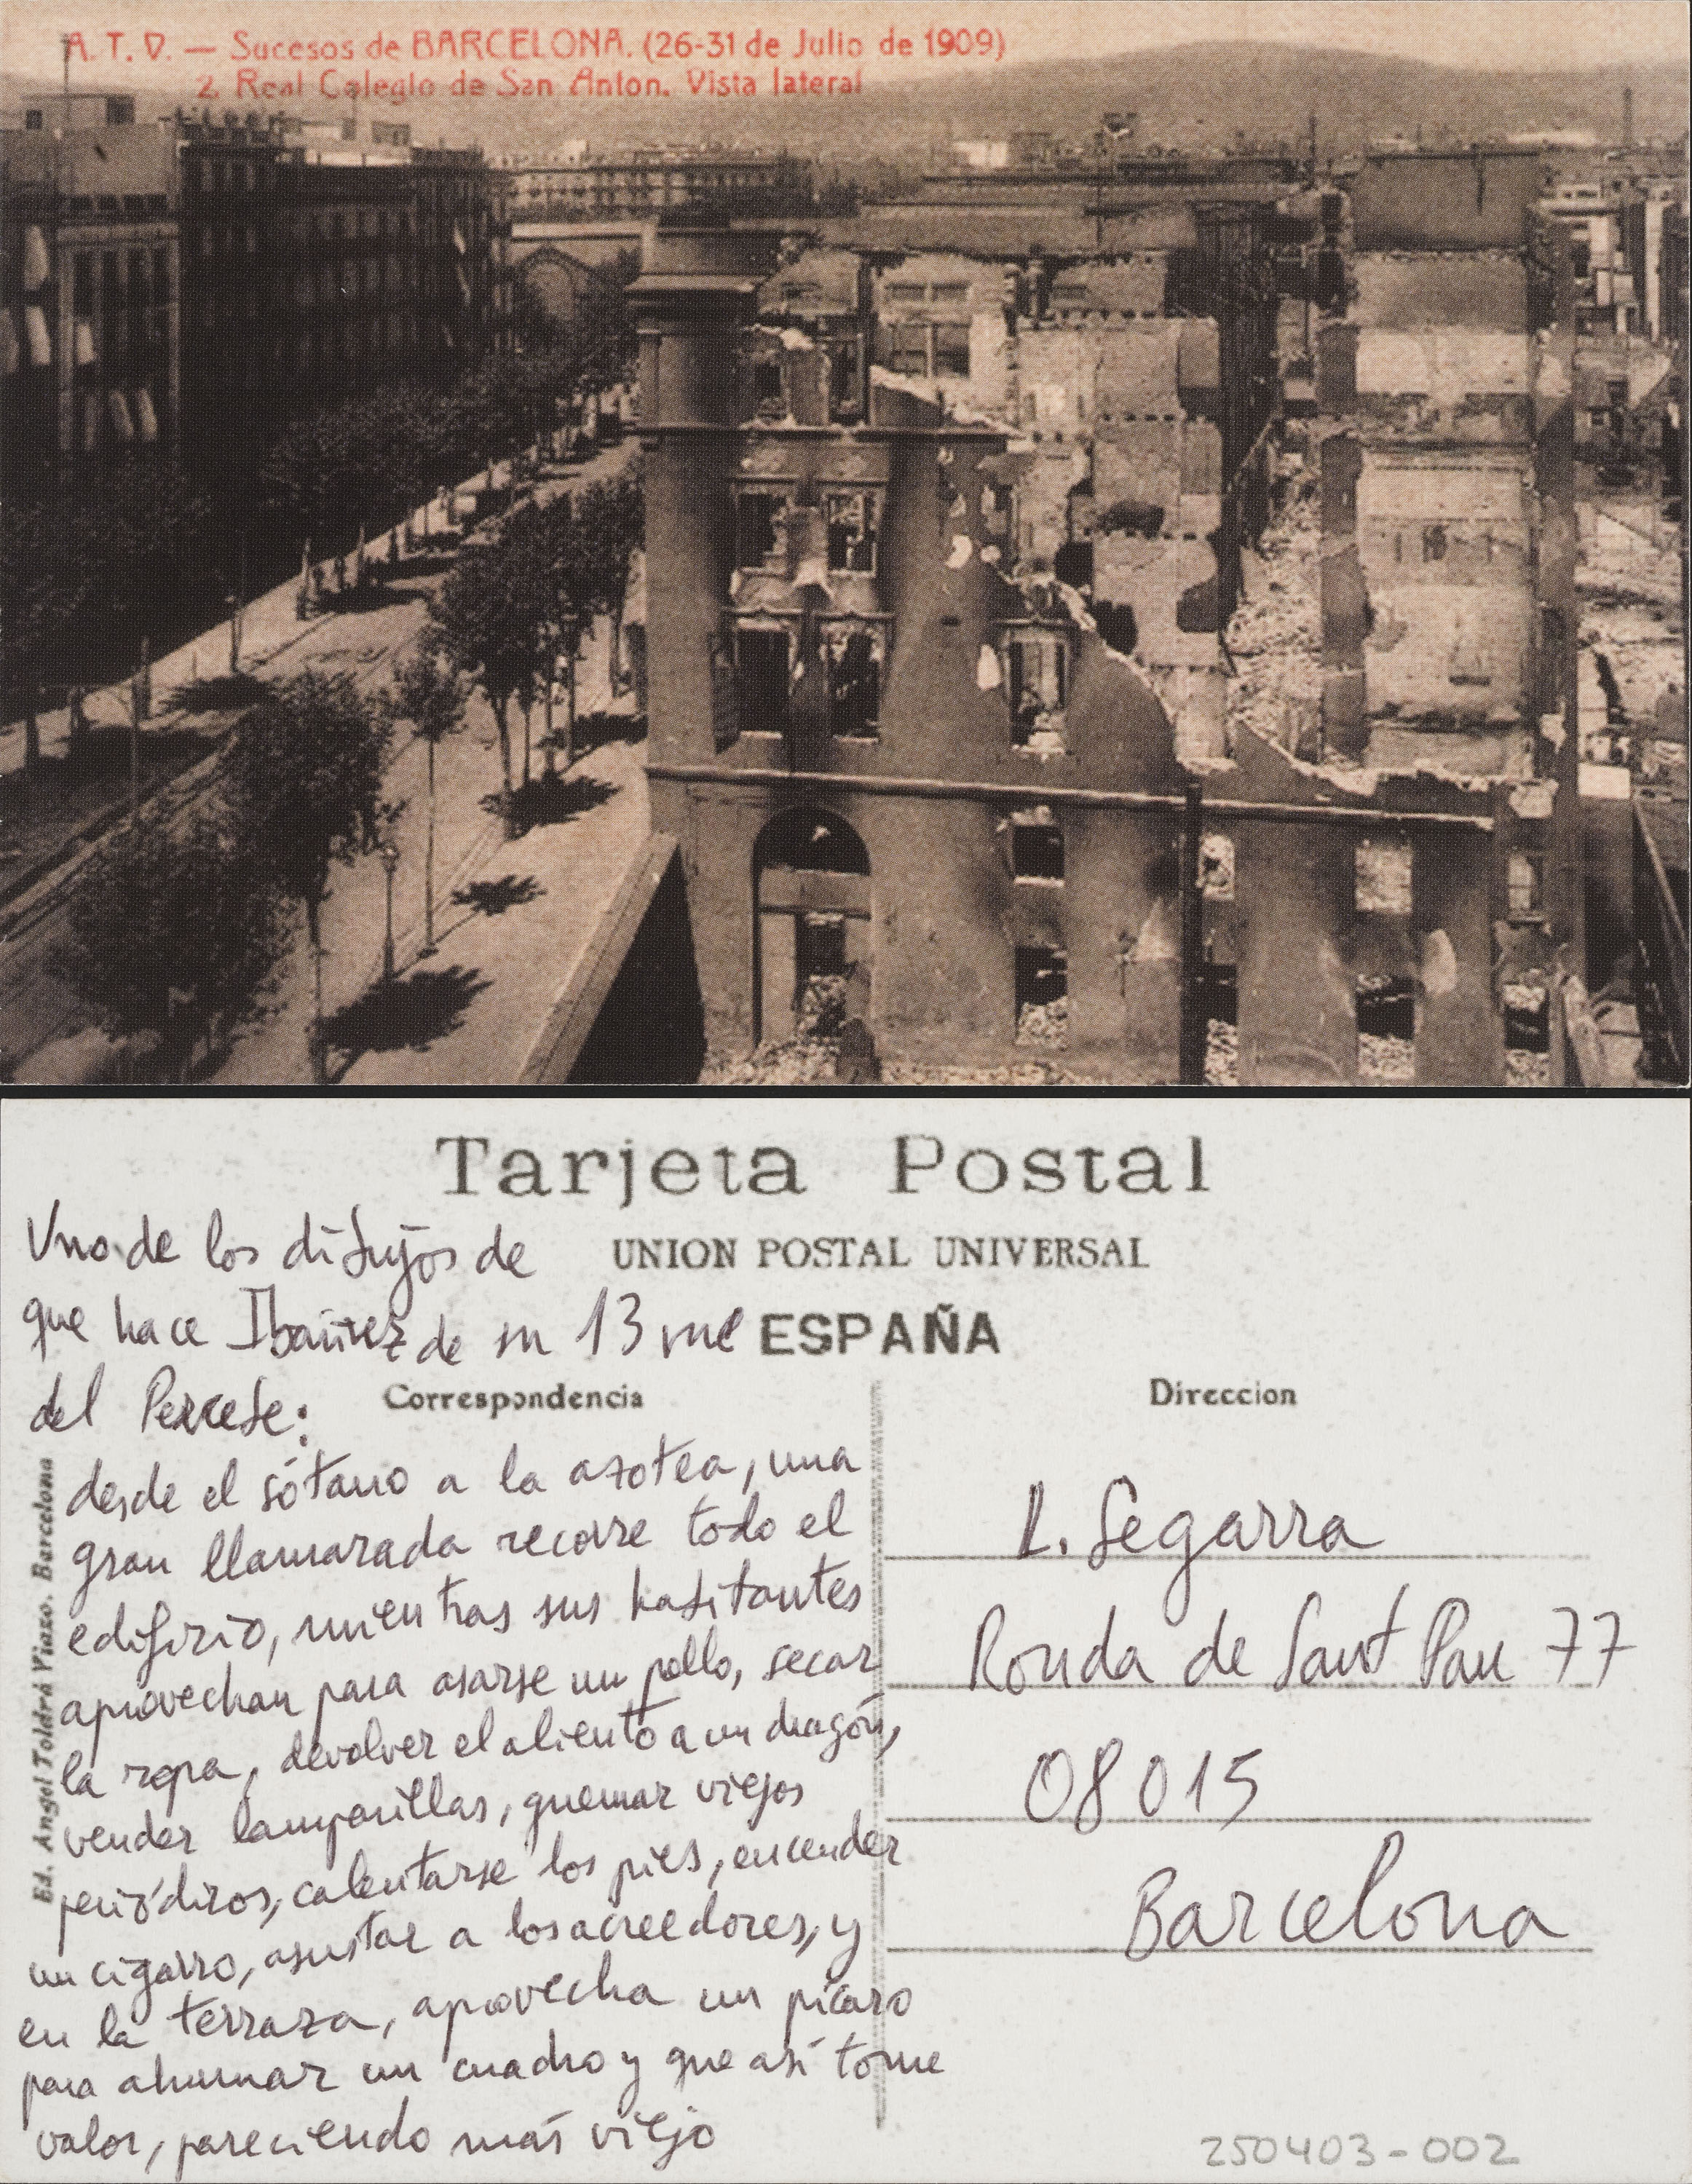 A. T. V. — Sucesos de BARCELONA. (26-31 de Julio de 1909)
2. Real Colegio de San Anton. Vista lateral
Tarjeta Postal
UNION POSTAL UNIVERSAL
ESPAÑA
Correspondencia
Direccion
Uno de los dibujos de
que hace Ibáñez de su 13 rue
del Percebe:
desde el sótano a la azotea, una
gran llamarada recorre todo el
edificio, mientras sus habitantes
aprovechan para asarse un pollo, secar
la ropa, devolver el aliento a un dragón,
vender lamparillas, quemar viejos
periódicos, calentarse los pies, encender
un cigarro, asustar a los acreedores, y
en la terraza, aprovecha un pícaro
para ahumar un cuadro y que así tome
valor, pareciendo más viejo
Ed. Ángel Toldrá Viazo. Barcelona
L. Segarra
Ronda de Sant Pau 77
08015
Barcelona
250403-002